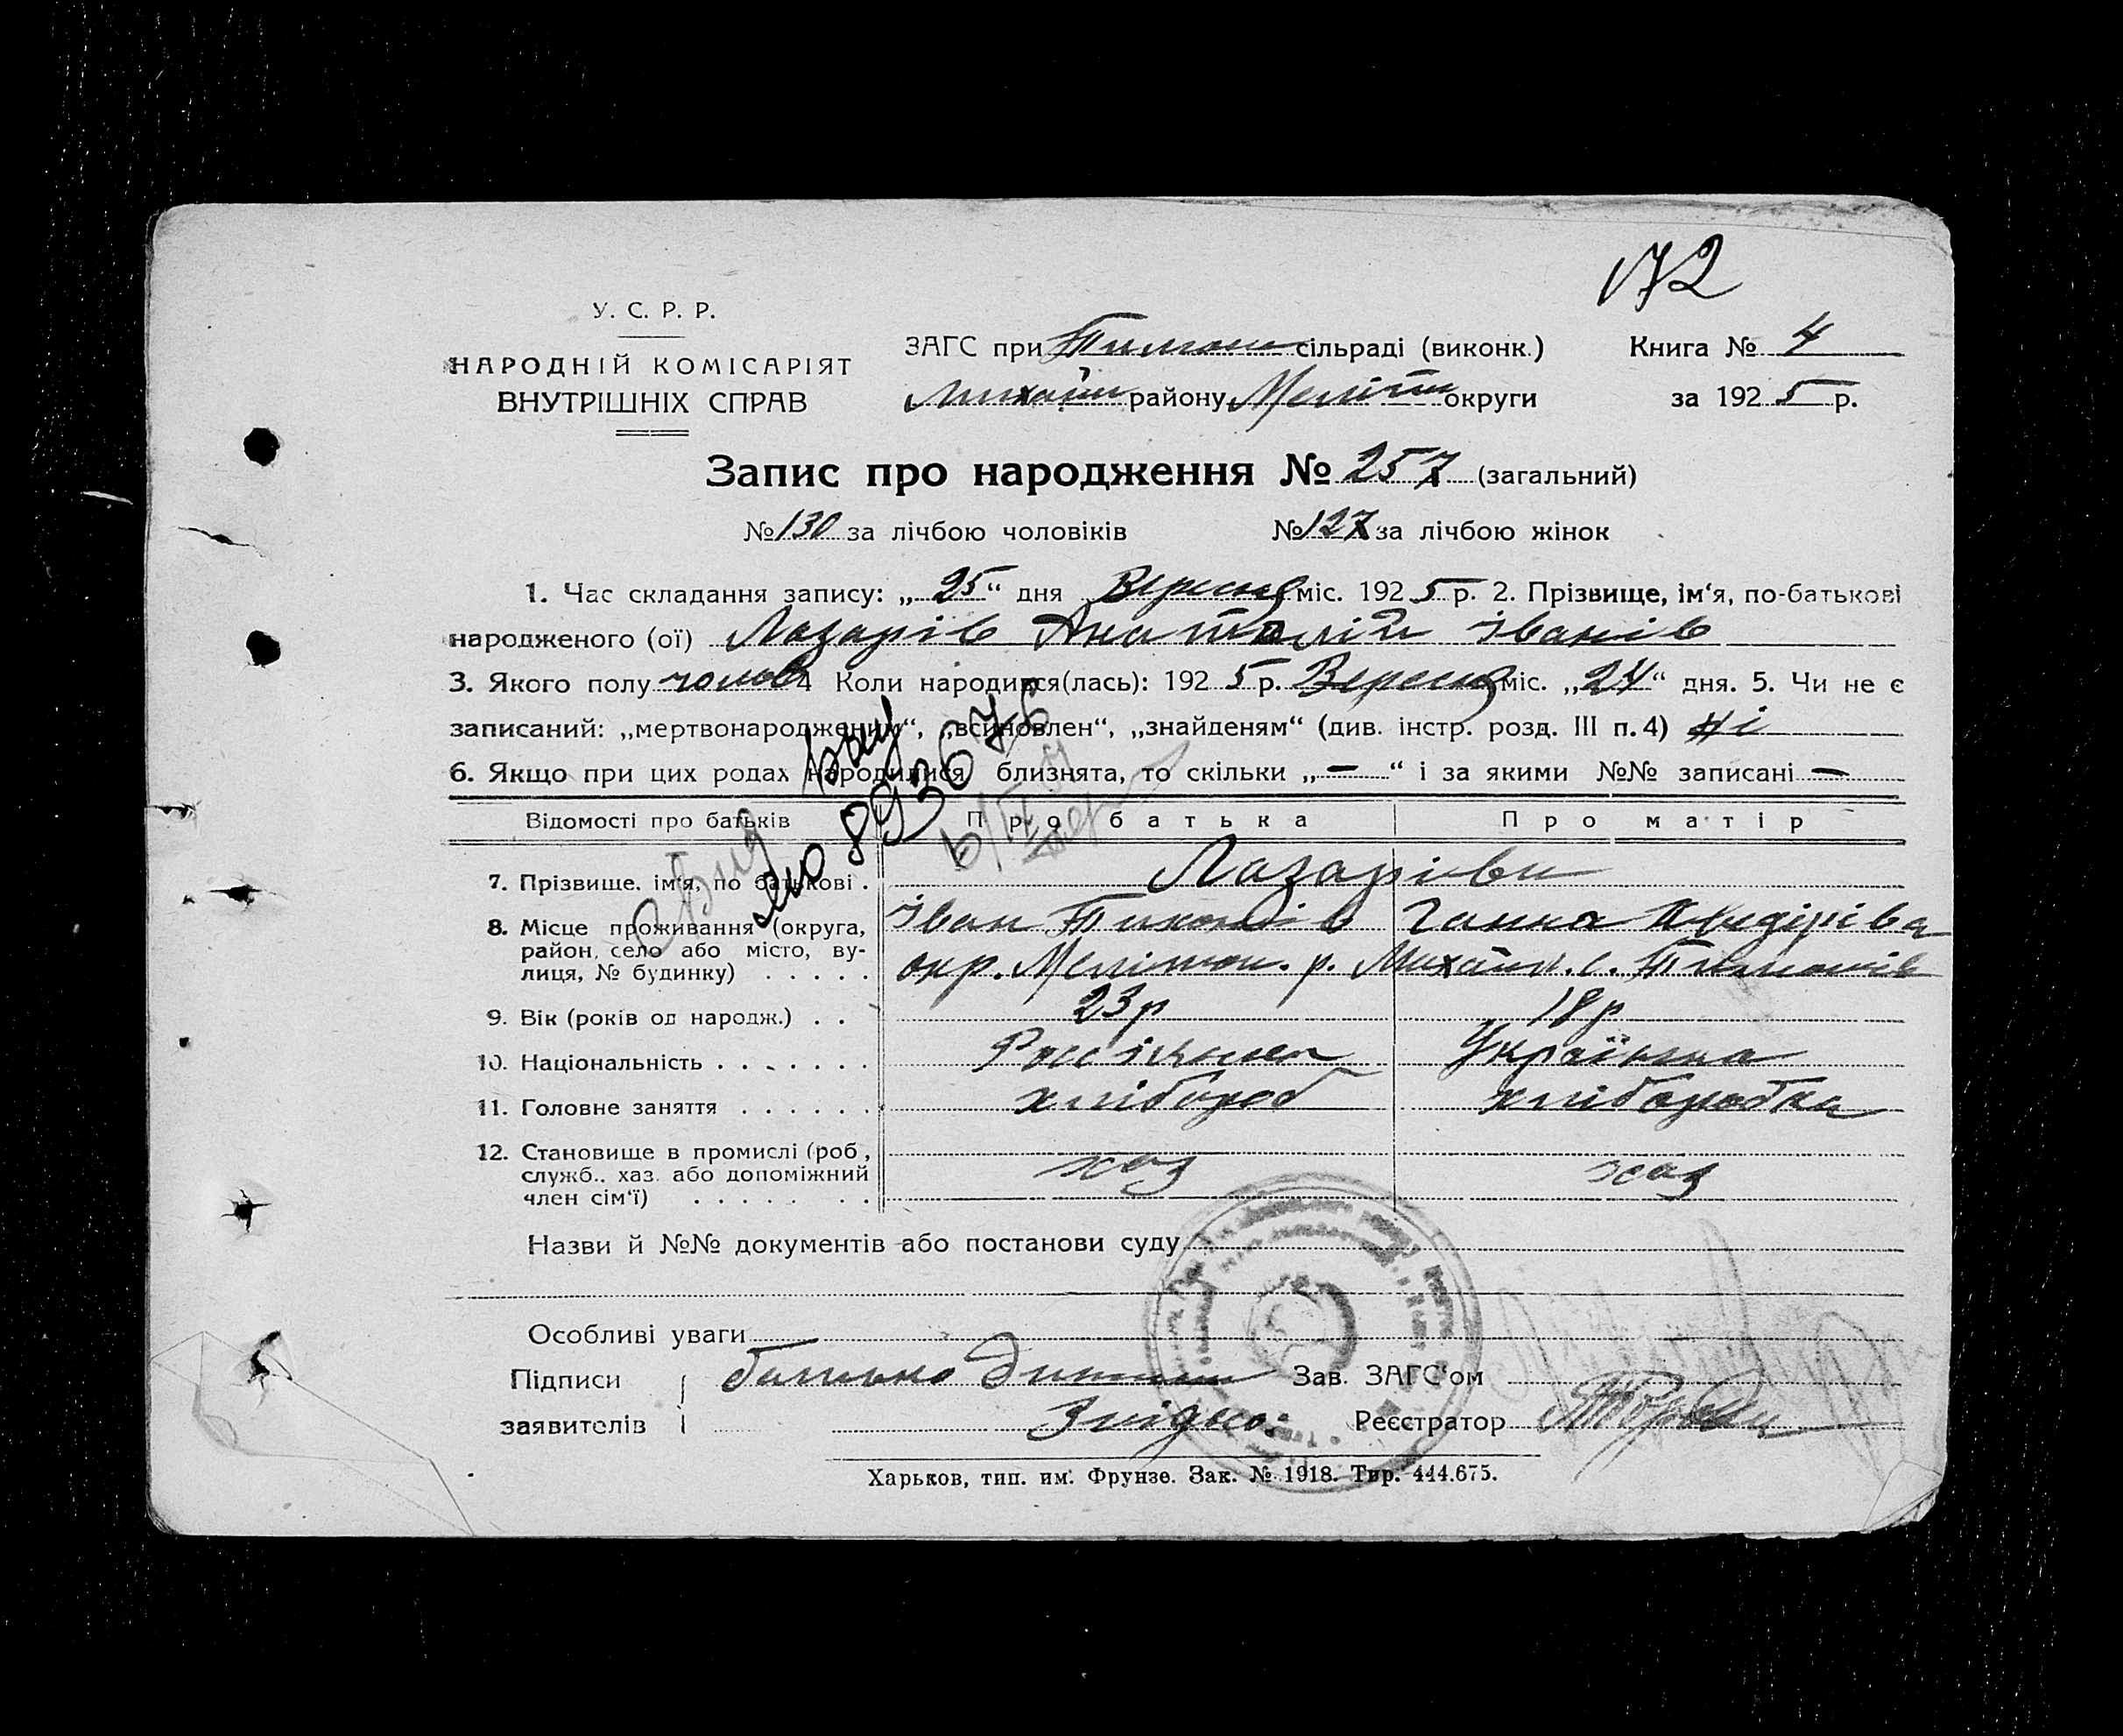 172
У. С. Р. Р.
НАРОДНІЙ КОМІСАРІЯТ
ВНУТРІШНІХ СПРАВ
ЗАГС при Тимош сільраді (виконк.)
Книга № 4
Михайл району Меліт округи
за 1925 р.
Запис про народження № 257 (загальний)
№ 130 за лічбою чоловіків № 127 за лічбою жінок
1. Час складання запису: „25“ дня Вересня міс. 1925 р. 2. Прізвище, ім‘я, по-батькові
народженого (ої) Лазарів Анатолій Іванів
3. Якого полу чолов 4 Коли народився(лась): 1925 р. Вересня міс. „24“ дня. 5. Чи не є
записаний: „мертвонароджений“, „всиновлен“, „знайденям“ (див. інстр. розд. III п. 4) ні
6. Якщо при цих родах народилися близнята, то скільки „—“ і за якими №№ записані —
Відомості про батьків
Про батька
Про матір
7. Прізвище, ім‘я, по батькові .
Лазаріви
Іван Тихонів
Ганна
8. Місце проживання (округа,
район, село або місто, ву-
лиця, № будинку) . . . . .
окр. Мелітоп. р. Михайл. с.
9. Вік (років од народж.) . .
23 р
18 р
10. Національність . . . . . . .
Українка
11. Головне заняття . . . . . .
хлібороб
хліборобка
12. Становище в промислі (роб,
служб., хаз. або допоміжний
член сім‘ї) . . . . . . . .
хаз
хаз
Назви й №№ документів або постанови суду
Особливі уваги
Підписи
заявителів
батько дитини
Зав. ЗАГС‘ом
Згідно:
Реєстратор
Харьков, тип. им. Фрунзе. Зак. № 1918. Тир. 444.675.